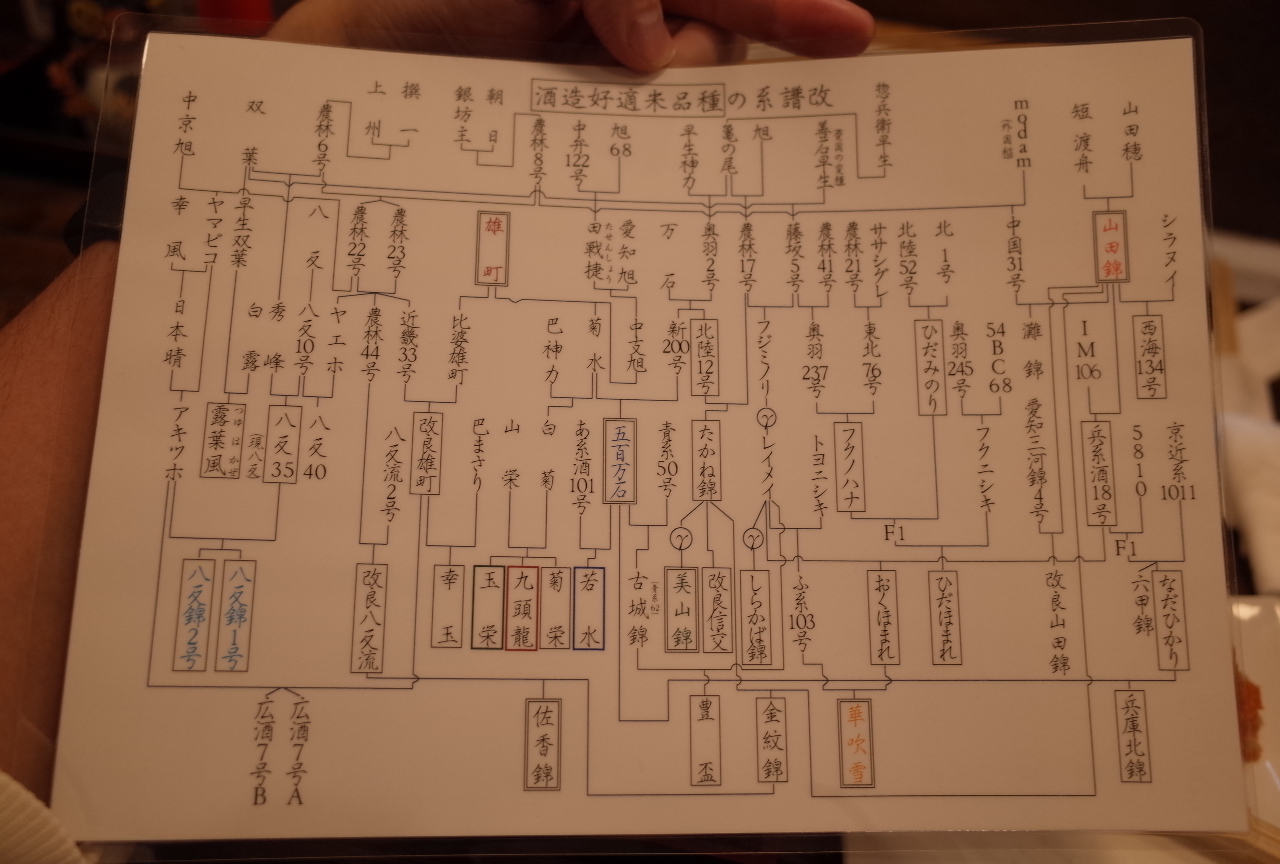 酒造好適米品種の系譜改
中京旭
双葉
農林6号
上州
撰一
銀坊主
朝日
農林8号
中弁122号
旭68
早生神力
亀の尾
旭
善石早生
惣兵衛早生
modam
短渡舟
山田穂
幸風
ヤマビコ
早生双葉
八反
農林22号
農林23号
雄町
田戦捷
たせんしょう
愛知旭
万石
奥羽2号
農林17号
藤坂5号
農林41号
農林21号
ササシグレ
北陸52号
北1号
中国31号
山田錦
シラヌイ
日本晴
白露
秀峰
八反10号
ヤエホ
農林44号
近畿33号
比婆雄町
巴神力
菊水
中支旭
新200号
北陸12号
フジミノリ
奥羽237号
東北76号
ひだみのり
奥羽245号
54BC68
灘錦
IM106
西海134号
アキツホ
露葉風
つゆはかぜ
(現八反)
八反35
八反40
八反流2号
改良雄町
巴まさり
山栄
白菊
あ系酒101号
五百万石
青系50号
たかね錦
γ
レイメイ
トヨニシキ
フクノハナ
フクニシキ
愛知三河錦4号
兵系酒18号
5810
京近系1011
F1
F1
γ
γ
八反錦2号
八反錦1号
改良八反流
幸玉
玉栄
九頭龍
菊栄
若水
古城錦
(青系62)
美山錦
改良信交
しらかば錦
ふ系103号
おくほまれ
ひだほまれ
改良山田錦
六甲錦
なだひかり
広酒7号B
広酒7号A
佐香錦
豊盃
金紋錦
華吹雪
兵庫北錦